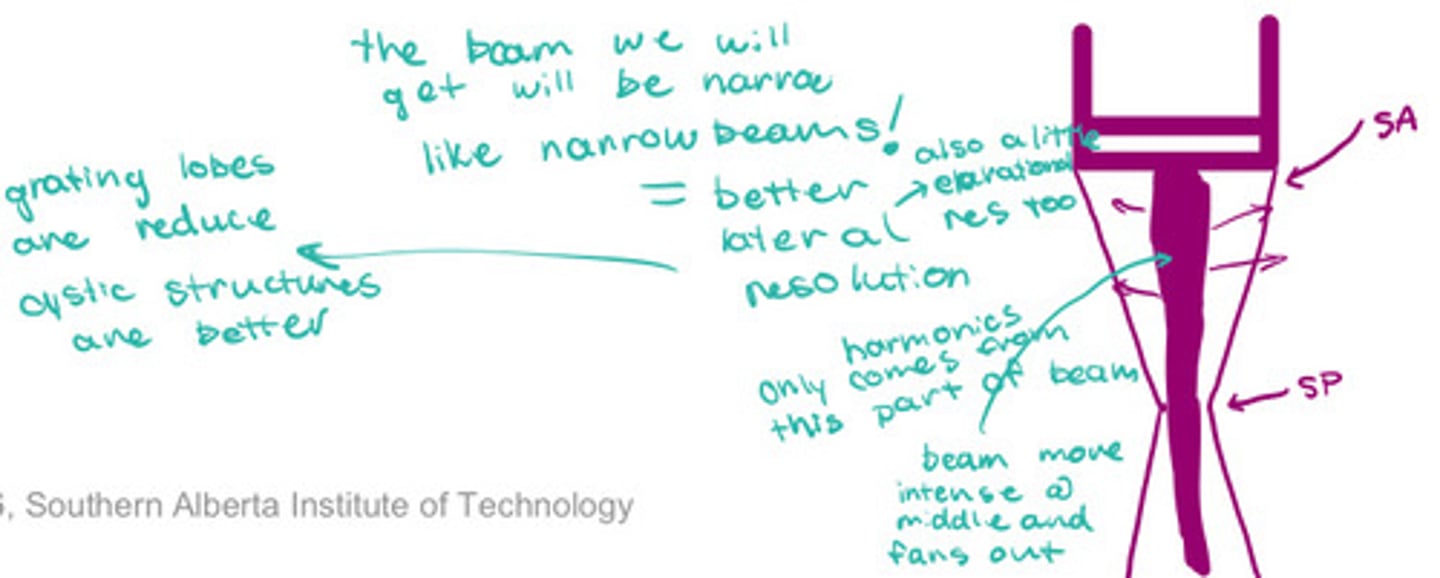 the beam we will
get will be narrow
like narrow beams!
= better
lateral
resolution
also a little
elevational
res too
grating lobes
are reduce
cystic structures
are better
harmonics
only comes from
this part of beam
beam more
intense @
middle and
fans out
SA
SP
, Southern Alberta Institute of Technology